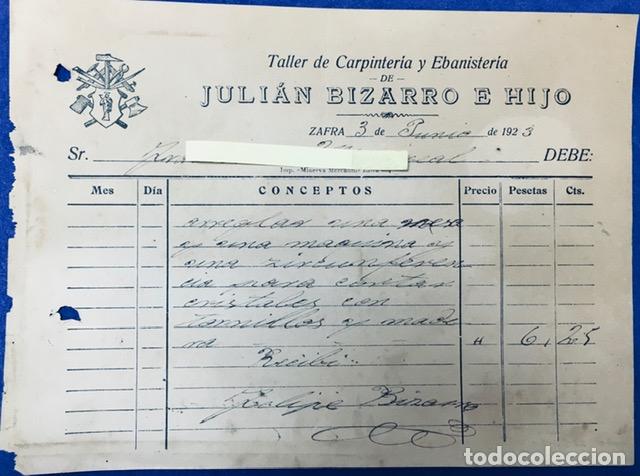 Taller de Carpintería y Ebanistería
DE
JULIÁN BIZARRO E HIJO
ZAFRA 3 de Junio de 1923
Sr. DEBE:
Imp. «Minerva
Mes Día CONCEPTOS Precio Pesetas Cts.
arreglar una mesa
y una maquina y
una zircunferen
cia para cortar
cristales con
tornillos y made
ra " 6,25
Recibi
Felipe Bizarro
todocoleccion.net